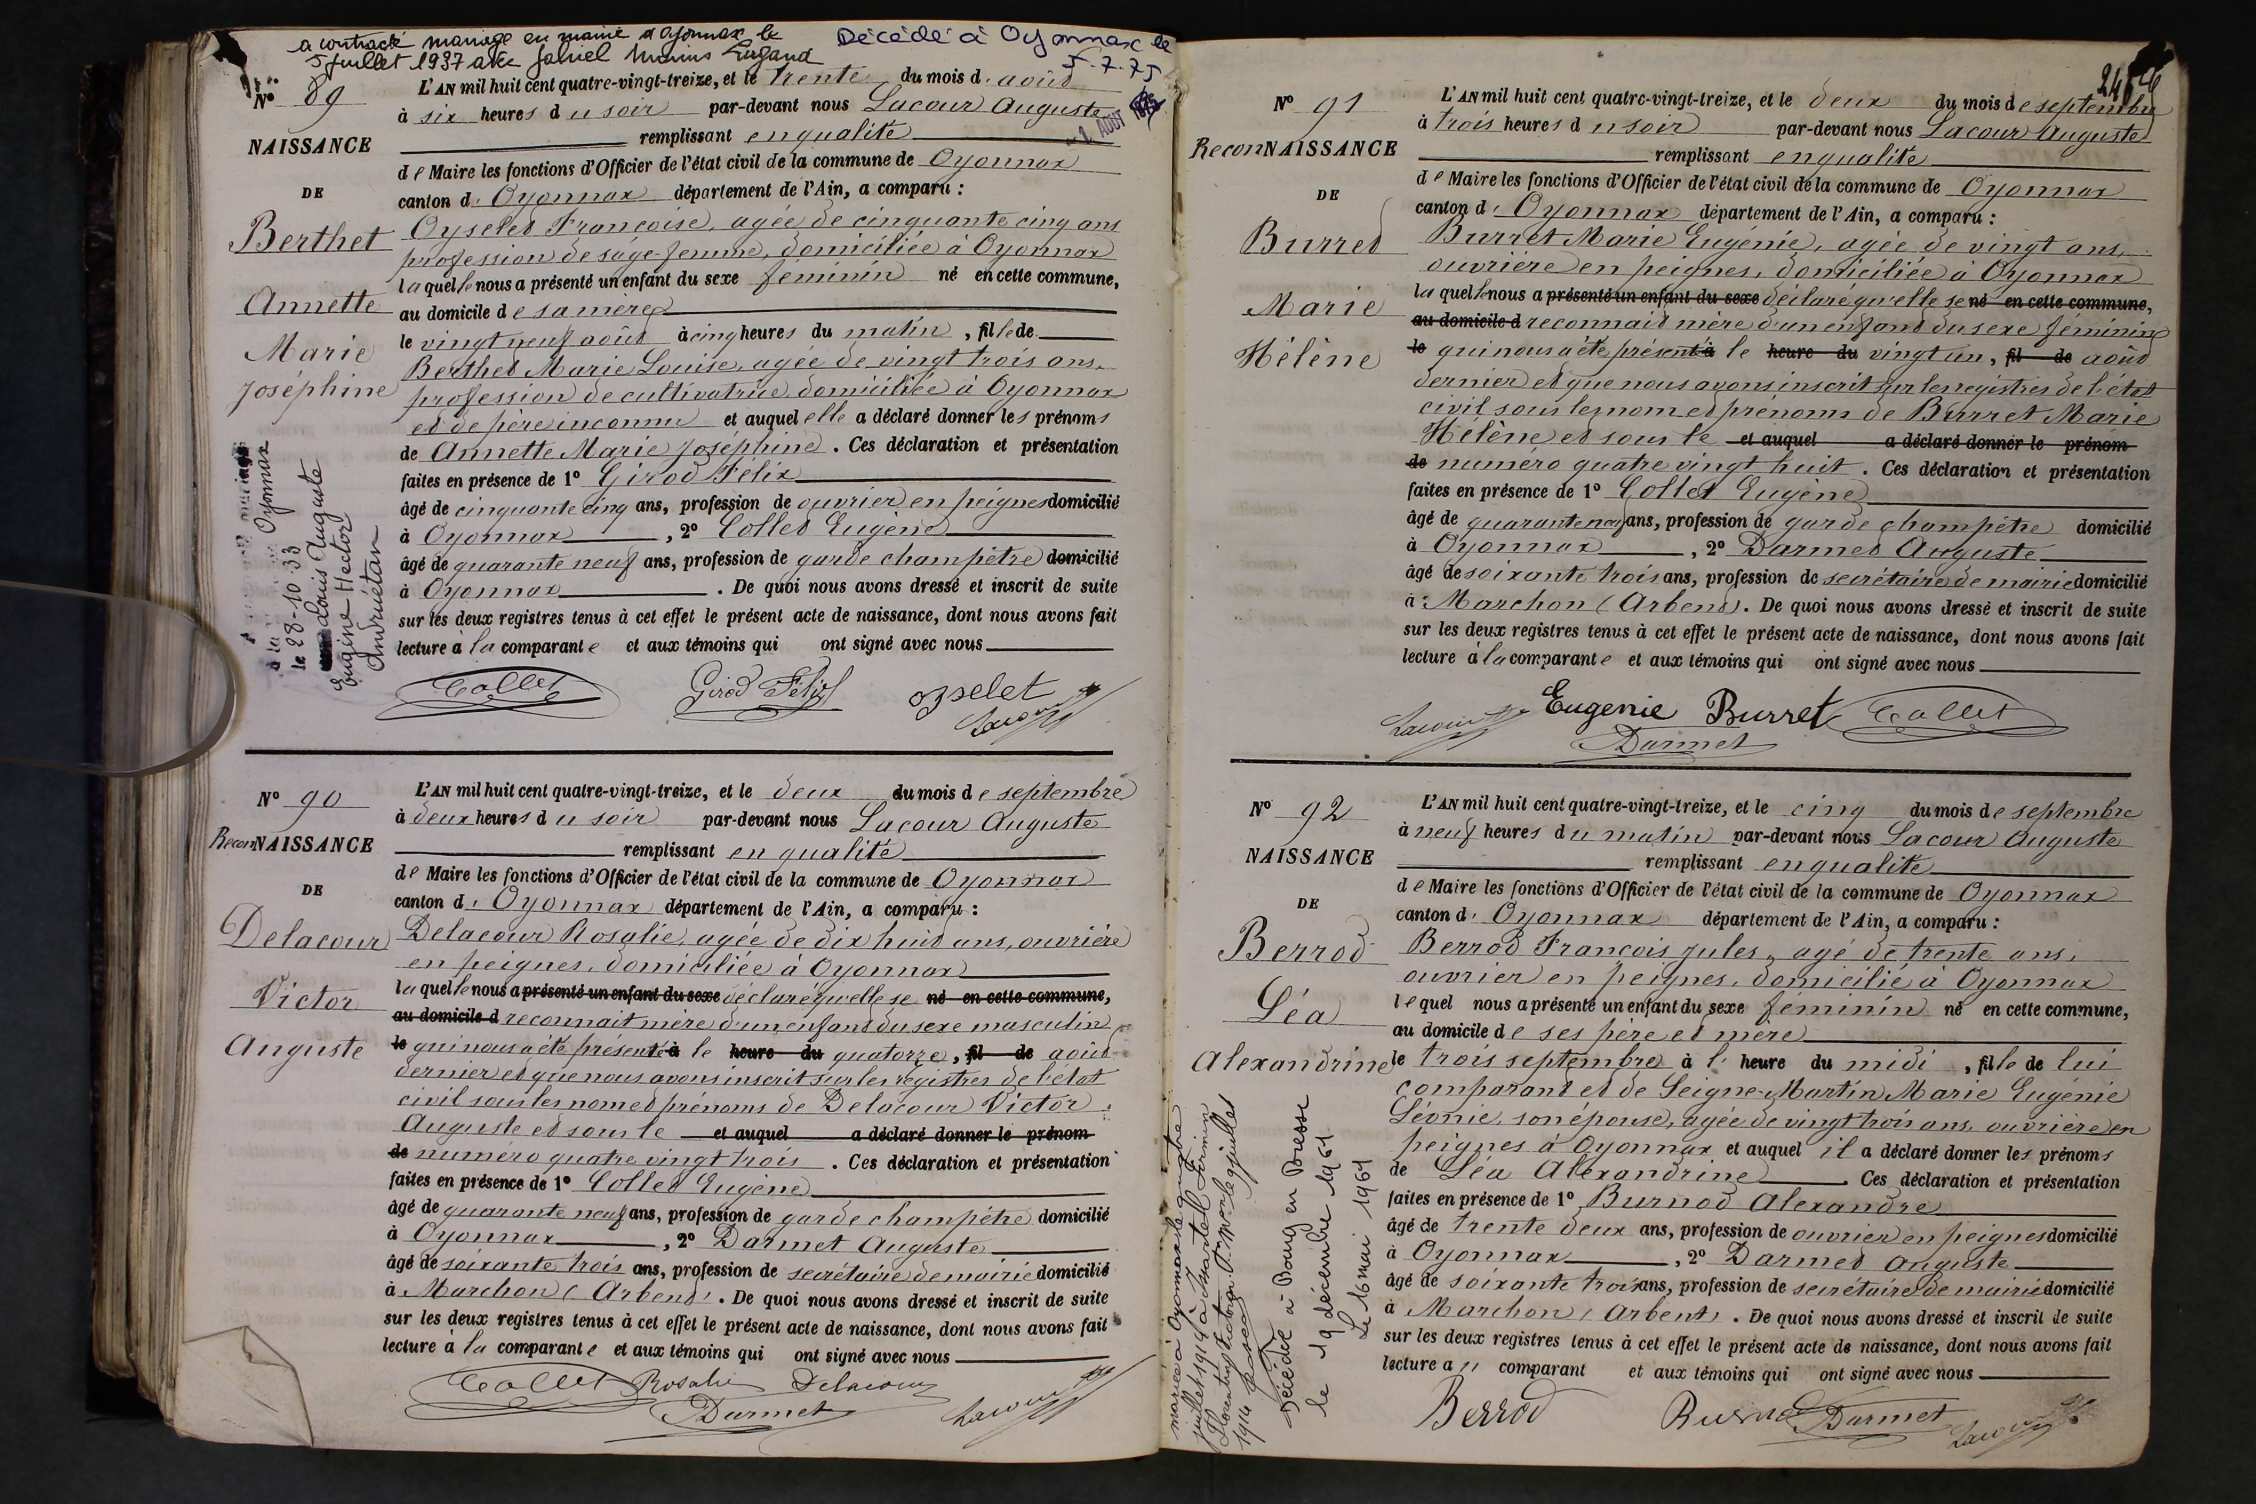 a contracté mariage en mairie d'Oyonnax le
5 juillet 1937 avec
Décédé à Oyonnax le
5.7.75
N° 89
NAISSANCE
DE
Berthet
Annette
Marie
Joséphine
L'AN mil huit cent quatre-vingt-treize, et le trente du mois d' août
à six heures du soir par-devant nous Lacour Auguste
remplissant en qualité
de Maire les fonctions d'Officier de l'état civil de la commune de Oyonnax
canton d' Oyonnax département de l'Ain, a comparu :
Oyselet Françoise, agée de cinquante cinq ans
profession de sage femme, domiciliée à Oyonnax
laquelle nous a présenté un enfant du sexe féminin né en cette commune,
au domicile de sa mère
le vingt neuf août à cinq heures du matin, fille de
Berthet Marie Louise, agée de vingt trois ans,
profession de cultivatrice domiciliée à Oyonnax
et de père inconnu et auquel elle a déclaré donner les prénoms
de Annette Marie Joséphine. Ces déclaration et présentation
faites en présence de 1° Girod Félix
âgé de cinquante cinq ans, profession de ouvrier en peignes domicilié
à Oyonnax, 2° Collet Eugène
âgé de quarante neuf ans, profession de garde champêtre domicilié
à Oyonnax. De quoi nous avons dressé et inscrit de suite
sur les deux registres tenus à cet effet le présent acte de naissance, dont nous avons fait
lecture à la comparante et aux témoins qui ont signé avec nous
Collet Girod Félix Ozselet
Lacour
Oyonnax
le 28-10 33
Louis Auguste
Eugine Hector
Andruétan
N° 90
ReconNAISSANCE
DE
Delacour
Victor
Auguste
L'AN mil huit cent quatre-vingt-treize, et le deux du mois de septembre
à deux heures du soir par-devant nous Lacour Auguste
remplissant en qualité
de Maire les fonctions d'Officier de l'état civil de la commune de Oyonnax
canton d' Oyonnax département de l'Ain, a comparu :
Delacour Rosalie, agée de dix huit ans, ouvrière
en peignes, domiciliée à Oyonnax
laquelle nous a présenté un enfant du sexe déclaré qu'elle se né en cette commune,
au domicile d reconnait mère d'un enfant du sexe masculin
le qui nous a été présenté à le heure du quatorze, fil de août
dernier et que nous avons inscrit sur les registres de l'état
civil sous les nom et prénoms de Delacour Victor
Auguste et sous le et auquel a déclaré donner le prénom
de numéro quatre vingt trois. Ces déclaration et présentation
faites en présence de 1° Collet Eugène
âgé de quarante neuf ans, profession de garde champêtre domicilié
à Oyonnax, 2° Darmet Auguste
âgé de soixante trois ans, profession de secrétaire de mairie domicilié
à Marchon (Arbent). De quoi nous avons dressé et inscrit de suite
sur les deux registres tenus à cet effet le présent acte de naissance, dont nous avons fait
lecture à la comparante et aux témoins qui ont signé avec nous
Collet Rosalie Delacour
Darmet Lacour
N° 91
ReconNAISSANCE
DE
Burret
Marie
Hélène
L'AN mil huit cent quatre-vingt-treize, et le deux du mois de septembre
à trois heures du soir par-devant nous Lacour Auguste
remplissant en qualité
de Maire les fonctions d'Officier de l'état civil de la commune de Oyonnax
canton d' Oyonnax département de l'Ain, a comparu :
Burret Marie Eugénie, agée de vingt ans,
ouvrière en peignes, domiciliée à Oyonnax
laquelle nous a présenté un enfant du sexe déclaré qu'elle se né en cette commune,
au domicile d reconnait mère d'un enfant du sexe féminin
le qui nous a été présenté à le heure du vingt un, fil de août
dernier et que nous avons inscrit sur les registres de l'état
civil sous les nom et prénoms de Burret Marie
Hélène et sous le et auquel a déclaré donner le prénom
de numéro quatre vingt huit. Ces déclaration et présentation
faites en présence de 1° Collet Eugène
âgé de quarante neuf ans, profession de garde champêtre domicilié
à Oyonnax, 2° Darmet Auguste
âgé de soixante trois ans, profession de secrétaire de mairie domicilié
à Marchon (Arbent). De quoi nous avons dressé et inscrit de suite
sur les deux registres tenus à cet effet le présent acte de naissance, dont nous avons fait
lecture à la comparante et aux témoins qui ont signé avec nous
Lacour Eugenie Burret Collet
Darmet
N° 92
NAISSANCE
DE
Berrod
Léa
Alexandrine
L'AN mil huit cent quatre-vingt-treize, et le cinq du mois de septembre
à neuf heures du matin par-devant nous Lacour Auguste
remplissant en qualité
de Maire les fonctions d'Officier de l'état civil de la commune de Oyonnax
canton d' Oyonnax département de l'Ain, a comparu :
Berrod François Jules, agé de trente ans,
ouvrier en peignes, domicilié à Oyonnax
lequel nous a présenté un enfant du sexe féminin né en cette commune,
au domicile de ses père et mère
le trois septembre à l' heure du midi, fille de lui
comparant et de Seigne-Martin Marie Eugénie
Léonie, son épouse, agée de vingt trois ans, ouvrière en
peignes à Oyonnax et auquel il a déclaré donner les prénoms
de Léa Alexandrine. Ces déclaration et présentation
faites en présence de 1° Burnod Alexandre
âgé de trente deux ans, profession de ouvrier en peignes domicilié
à Oyonnax, 2° Darmet Auguste
âgé de soixante trois ans, profession de secrétaire de mairie domicilié
à Marchon (Arbent). De quoi nous avons dressé et inscrit de suite
sur les deux registres tenus à cet effet le présent acte de naissance, dont nous avons fait
lecture au comparant et aux témoins qui ont signé avec nous
Berrod Burnod Darmet Lacour
mariée à Oyonnax le quatre
juillet 1914 à Martel Firmin
1914
Décédée à Bourg en Bresse
le 19 décembre 1961
Le 16 mai 1961